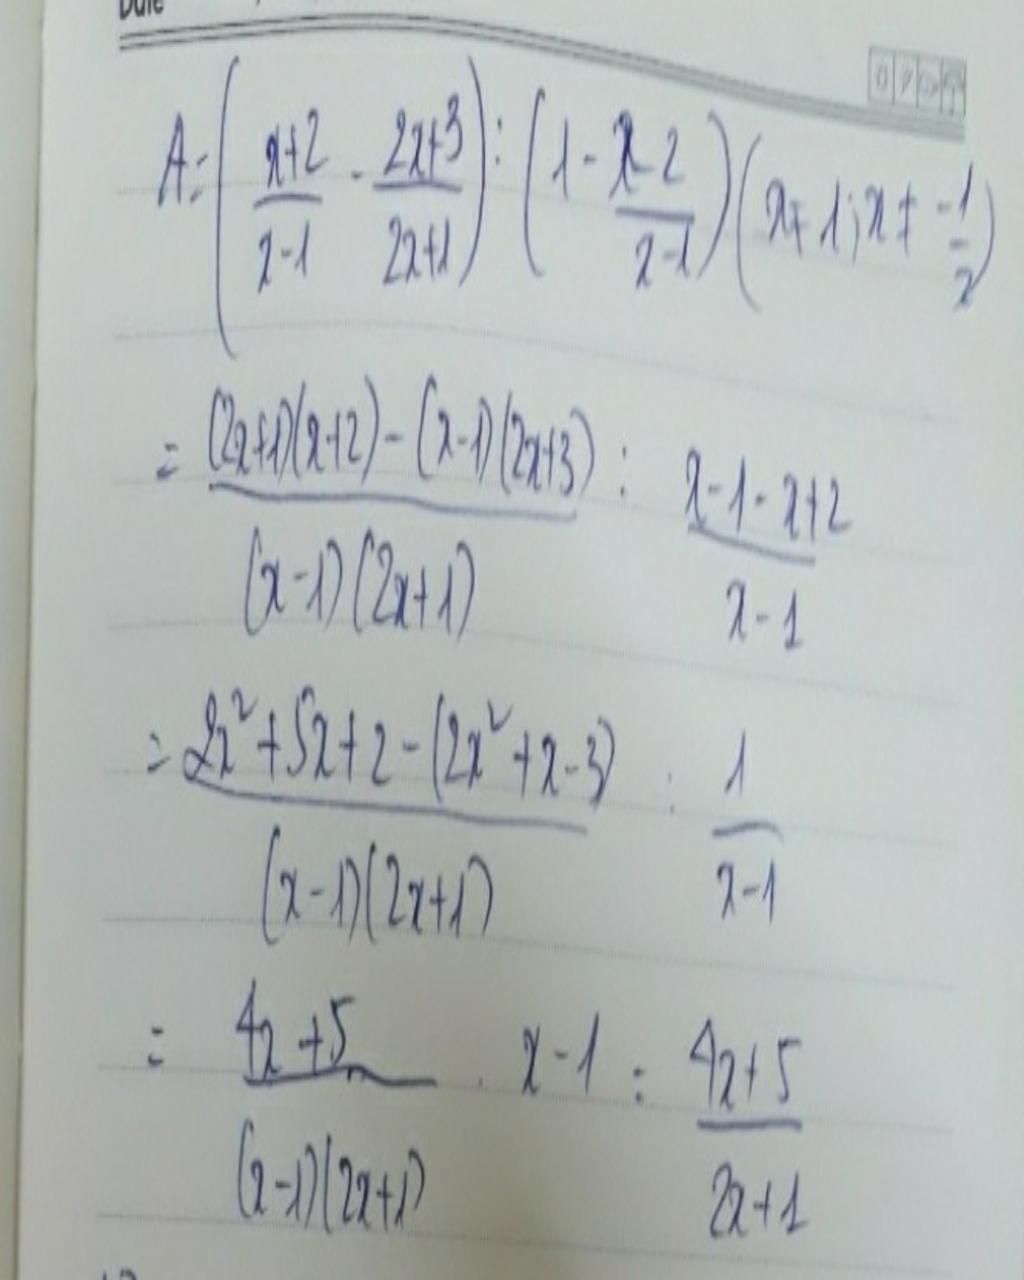 Date
A = ( x+2/x-1 - 2x+3/2x+1 ) : ( 1 - x-2/x-1 ) ( x ≠ 1; x ≠ -1/2 )
= (2x+1)(x+2) - (x-1)(2x+3)/(x-1)(2x+1) : x-1-x+2/x-1
= 2x²+5x+2-(2x²+x-3)/(x-1)(2x+1) : 1/x-1
= 4x+5/(x-1)(2x+1) . x-1 = 4x+5/2x+1